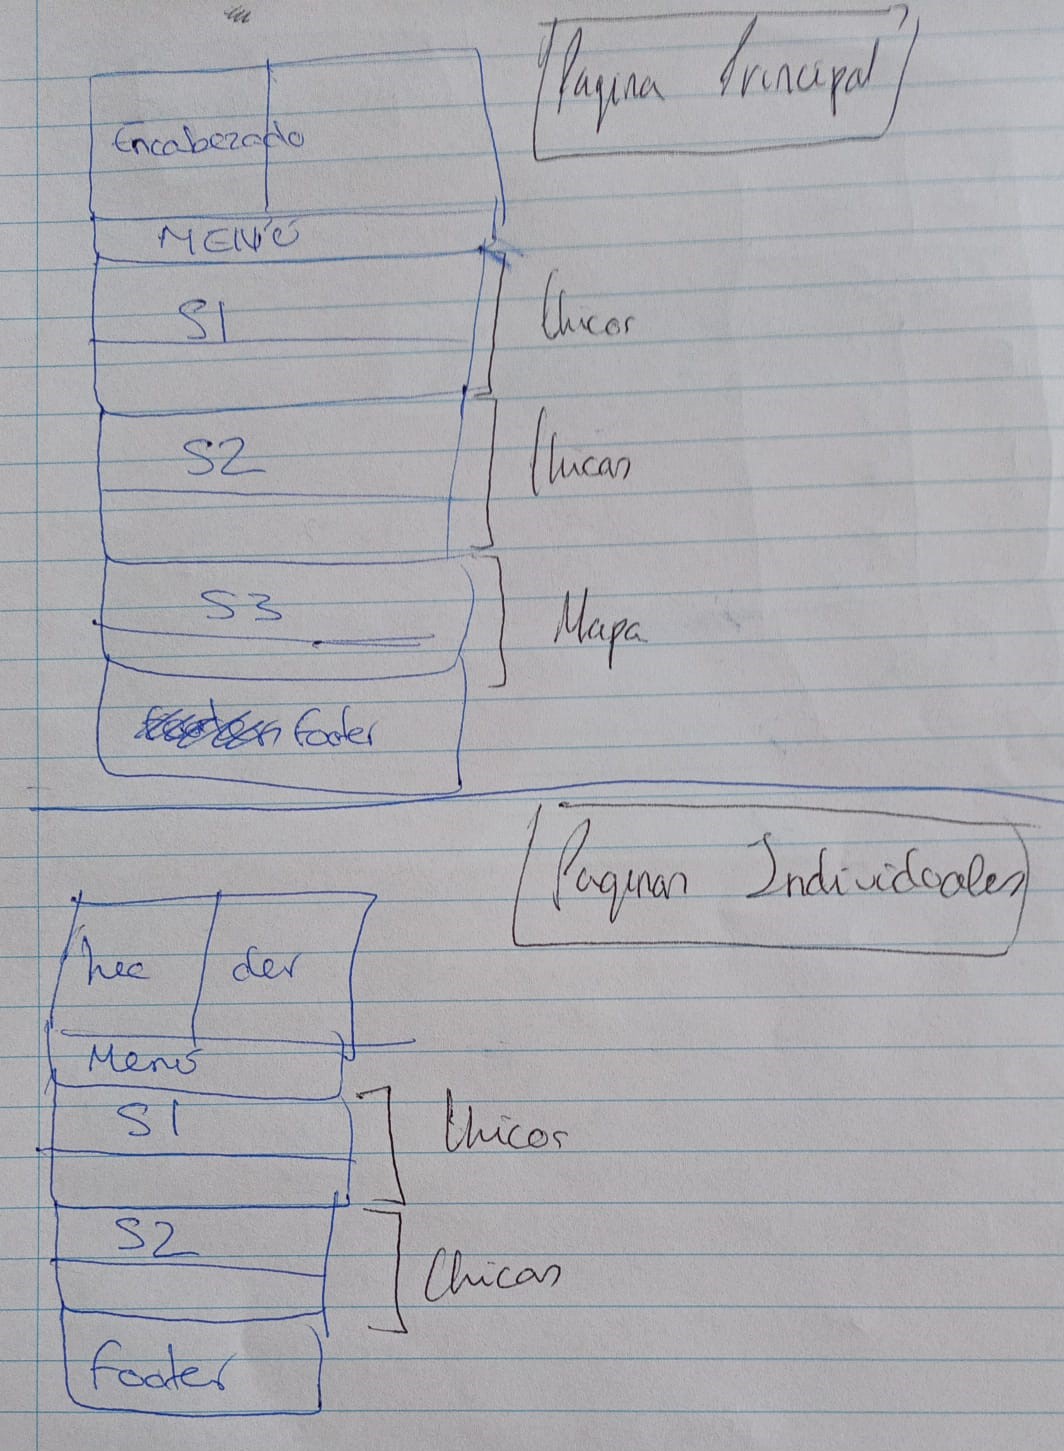 Pagina Principal
Encabezado
MENÚ
S1
Chicos
S2
Chicas
S3
Mapa
footer
Paginas Individuales
hea der
Menú
S1
Chicos
S2
Chicas
footer